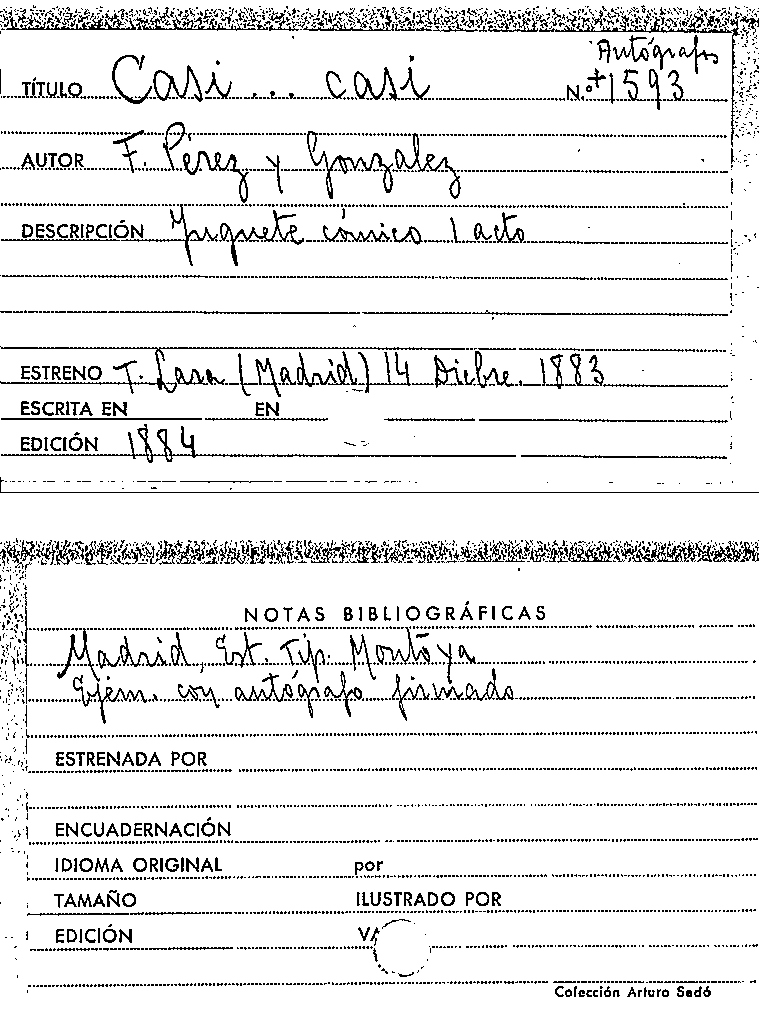 Autógrafo
TÍTULO Casi... casi N.º +1593
AUTOR F. Pérez y Gonzalez
DESCRIPCIÓN Juguete cómico 1 acto
ESTRENO T. Lara (Madrid) 14 Dicbre. 1883
ESCRITA EN EN
EDICIÓN 1884
NOTAS BIBLIOGRÁFICAS
Madrid, Est. Tip. Montoya
Ejem. con autógrafo firmado
ESTRENADA POR
ENCUADERNACIÓN
IDIOMA ORIGINAL por
TAMAÑO ILUSTRADO POR
EDICIÓN
Colección Arturo Sedó